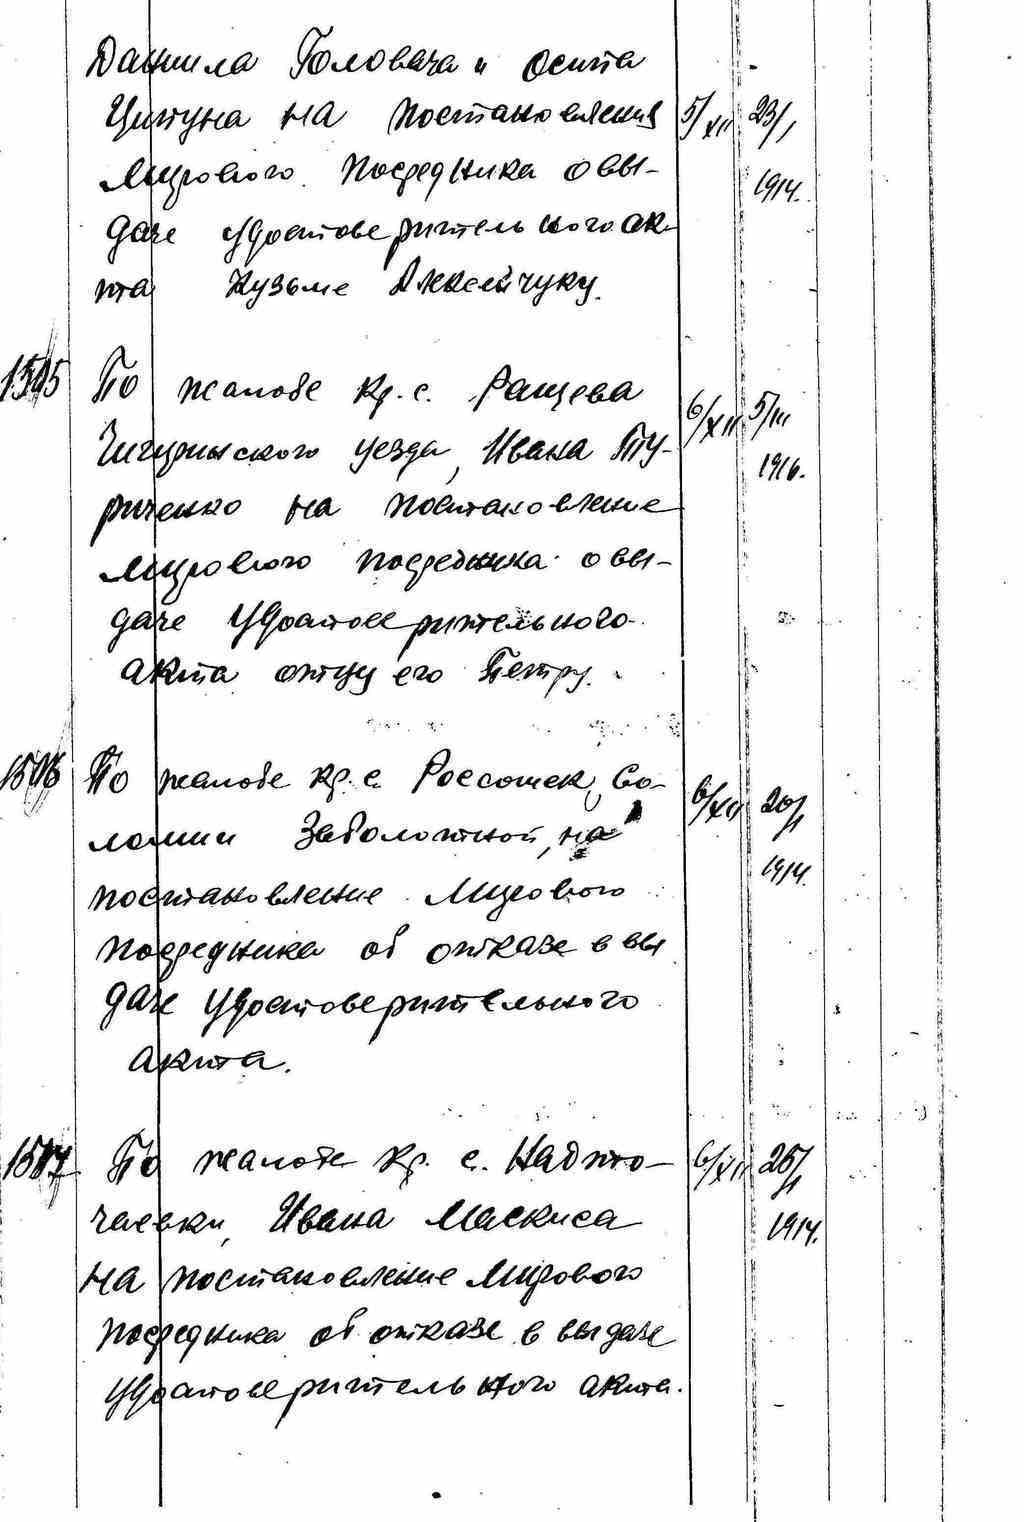 Данила Головача и Осипа
Ципуна на постановления 5/XII 23/I
Мирового Посредника о вы- 1914.
даче удостоверительного ак-
та Кузьме Алексейчуку.
1505 По жалобе кр. с. Ращева 6/XII 5/III
Чигиринского уезда, Ивана Ту- 1916.
риченко на постановление
мирового посредника о вы-
даче удостоверительного
акта отцу его Петру.
1506 По жалобе кр. с. Россошек, Со- 6/XII 20/I
ломии Заболотной, на 1914.
постановление Мирового
посредника об отказе в вы
даче удостоверительного
акта.
1507 По жалобе кр. с. Надто- 6/XII 25/I
чаевки, Ивана Маскиса 1914.
на постановление Мирового
посредника об отказе в выдаче
удостоверительного акта.